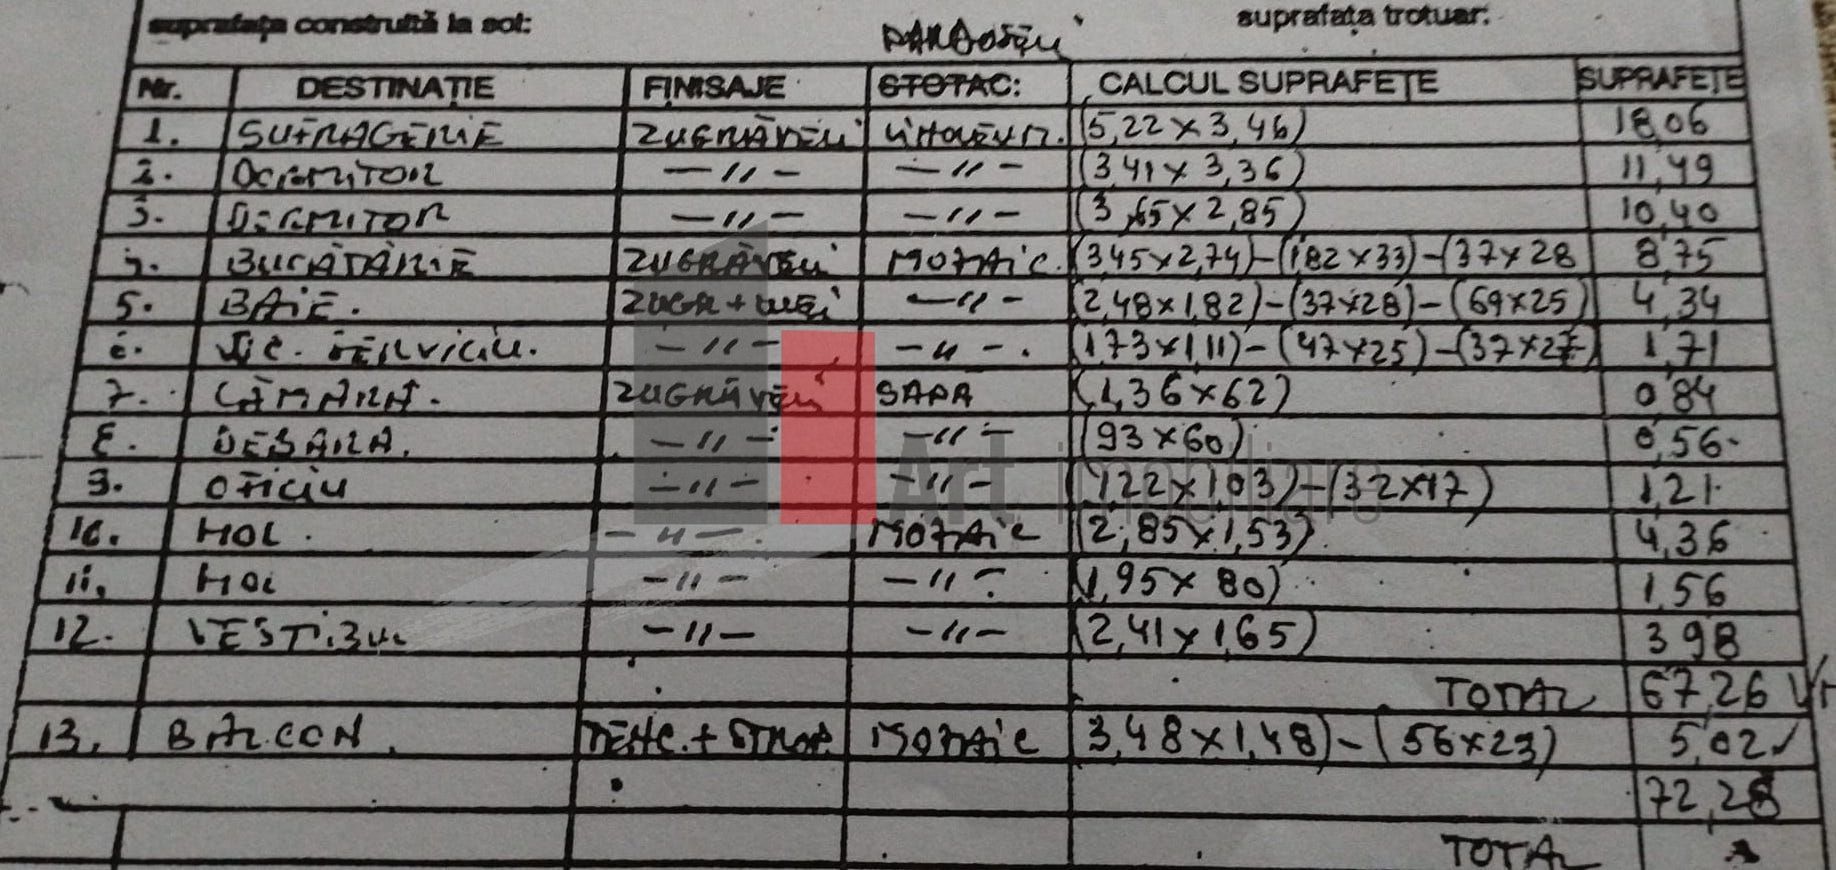 suprafața construită la sol: suprafața trotuar:
PARDOSELI
Nr. DESTINAȚIE FINISAJE STOTAC: CALCUL SUPRAFEȚE SUPRAFEȚE
1. SUFRAGERIE ZUGRĂVELI LINOLEUM. (5,22 x 3,46) 18,06
2. DORMITOR —//— —//— (3,41 x 3,36) 11,49
3. DORMITOR —//— —//— (3,65 x 2,85) 10,40
4. BUCĂTĂRIE ZUGRĂVELI MOZAIC. (3,45x2,74)-(1,82x33)-(37x28 8,75
5. BAIE. ZUGR + ULEI —//— (2,48x1,82)-(37x28)-(69x25) 4,34
6. W.C. SERVICIU. —//— —//—. (1,73x1,11)-(47x25)-(37x27) 1,71
7. CĂMARA. ZUGRĂVELI SAPA (1,36x62) 0,84
8. DEBARA. —//— —//— (93x60) 0,56
9. OFICIU —//— —//— (1,22x1,03)-(32x17) 1,21
10. HOL. —//—. MOZAIC (2,85x1,53) 4,36
11. HOL —//— —//— (1,95x80) 1,56
12. VESTIBUL —//— —//— (2,41x1,65) 3,98
TOTAL 67,26
13. BALCON. TENC. + STROP. MOZAIC (3,48x1,48)-(56x23) 5,02✓
72,28
TOTAL
Art imobiliare